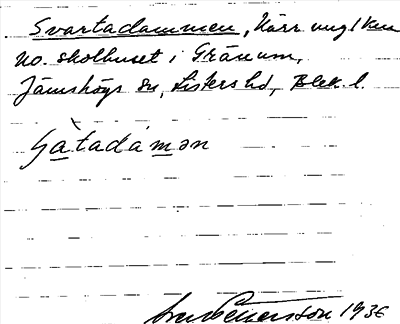 Svartadammen, Kärr ung 1 km
no. skolhuset i Gränum,
Jämshögs sn, Listers hd, Blek. l.
Sven Pettersson 1936